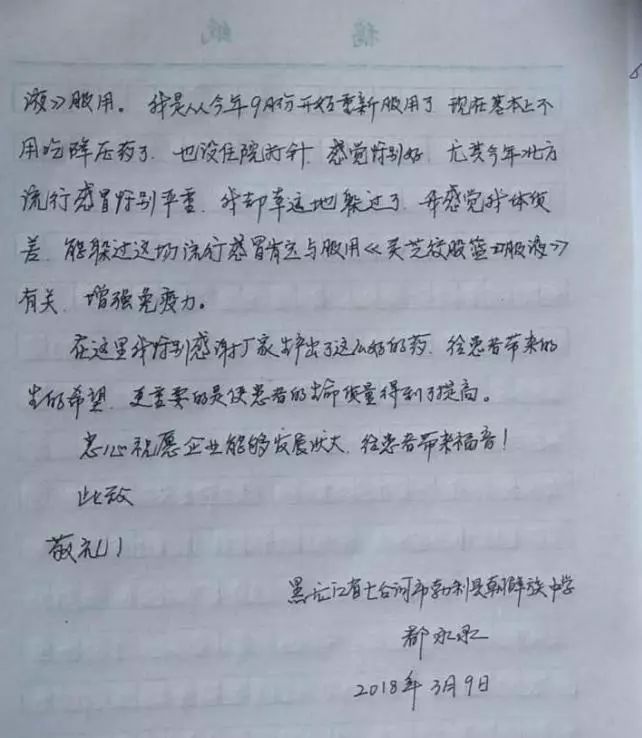 液》服用。我是从今年9月份开始重新服用了 现在基本上不
用吃降压药了、也没住院打针、感觉特别好、尤其今年北方
流行感冒特别严重、我却幸运地躲过了、我感觉我体质
差、能躲过这场流行感冒肯定与服用《灵芝绞股蓝口服液》
有关、增强免疫力。
在这里我特别感谢厂家生产出了这么好的药、给患者带来的
生的希望、更重要的是使患者的生命质量得到了提高。
忠心祝愿企业能够发展壮大、给患者带来福音！
此致
敬礼！
黑龙江省七台河市勃利县朝鲜族中学
都永录
2018年3月9日
稿 纸